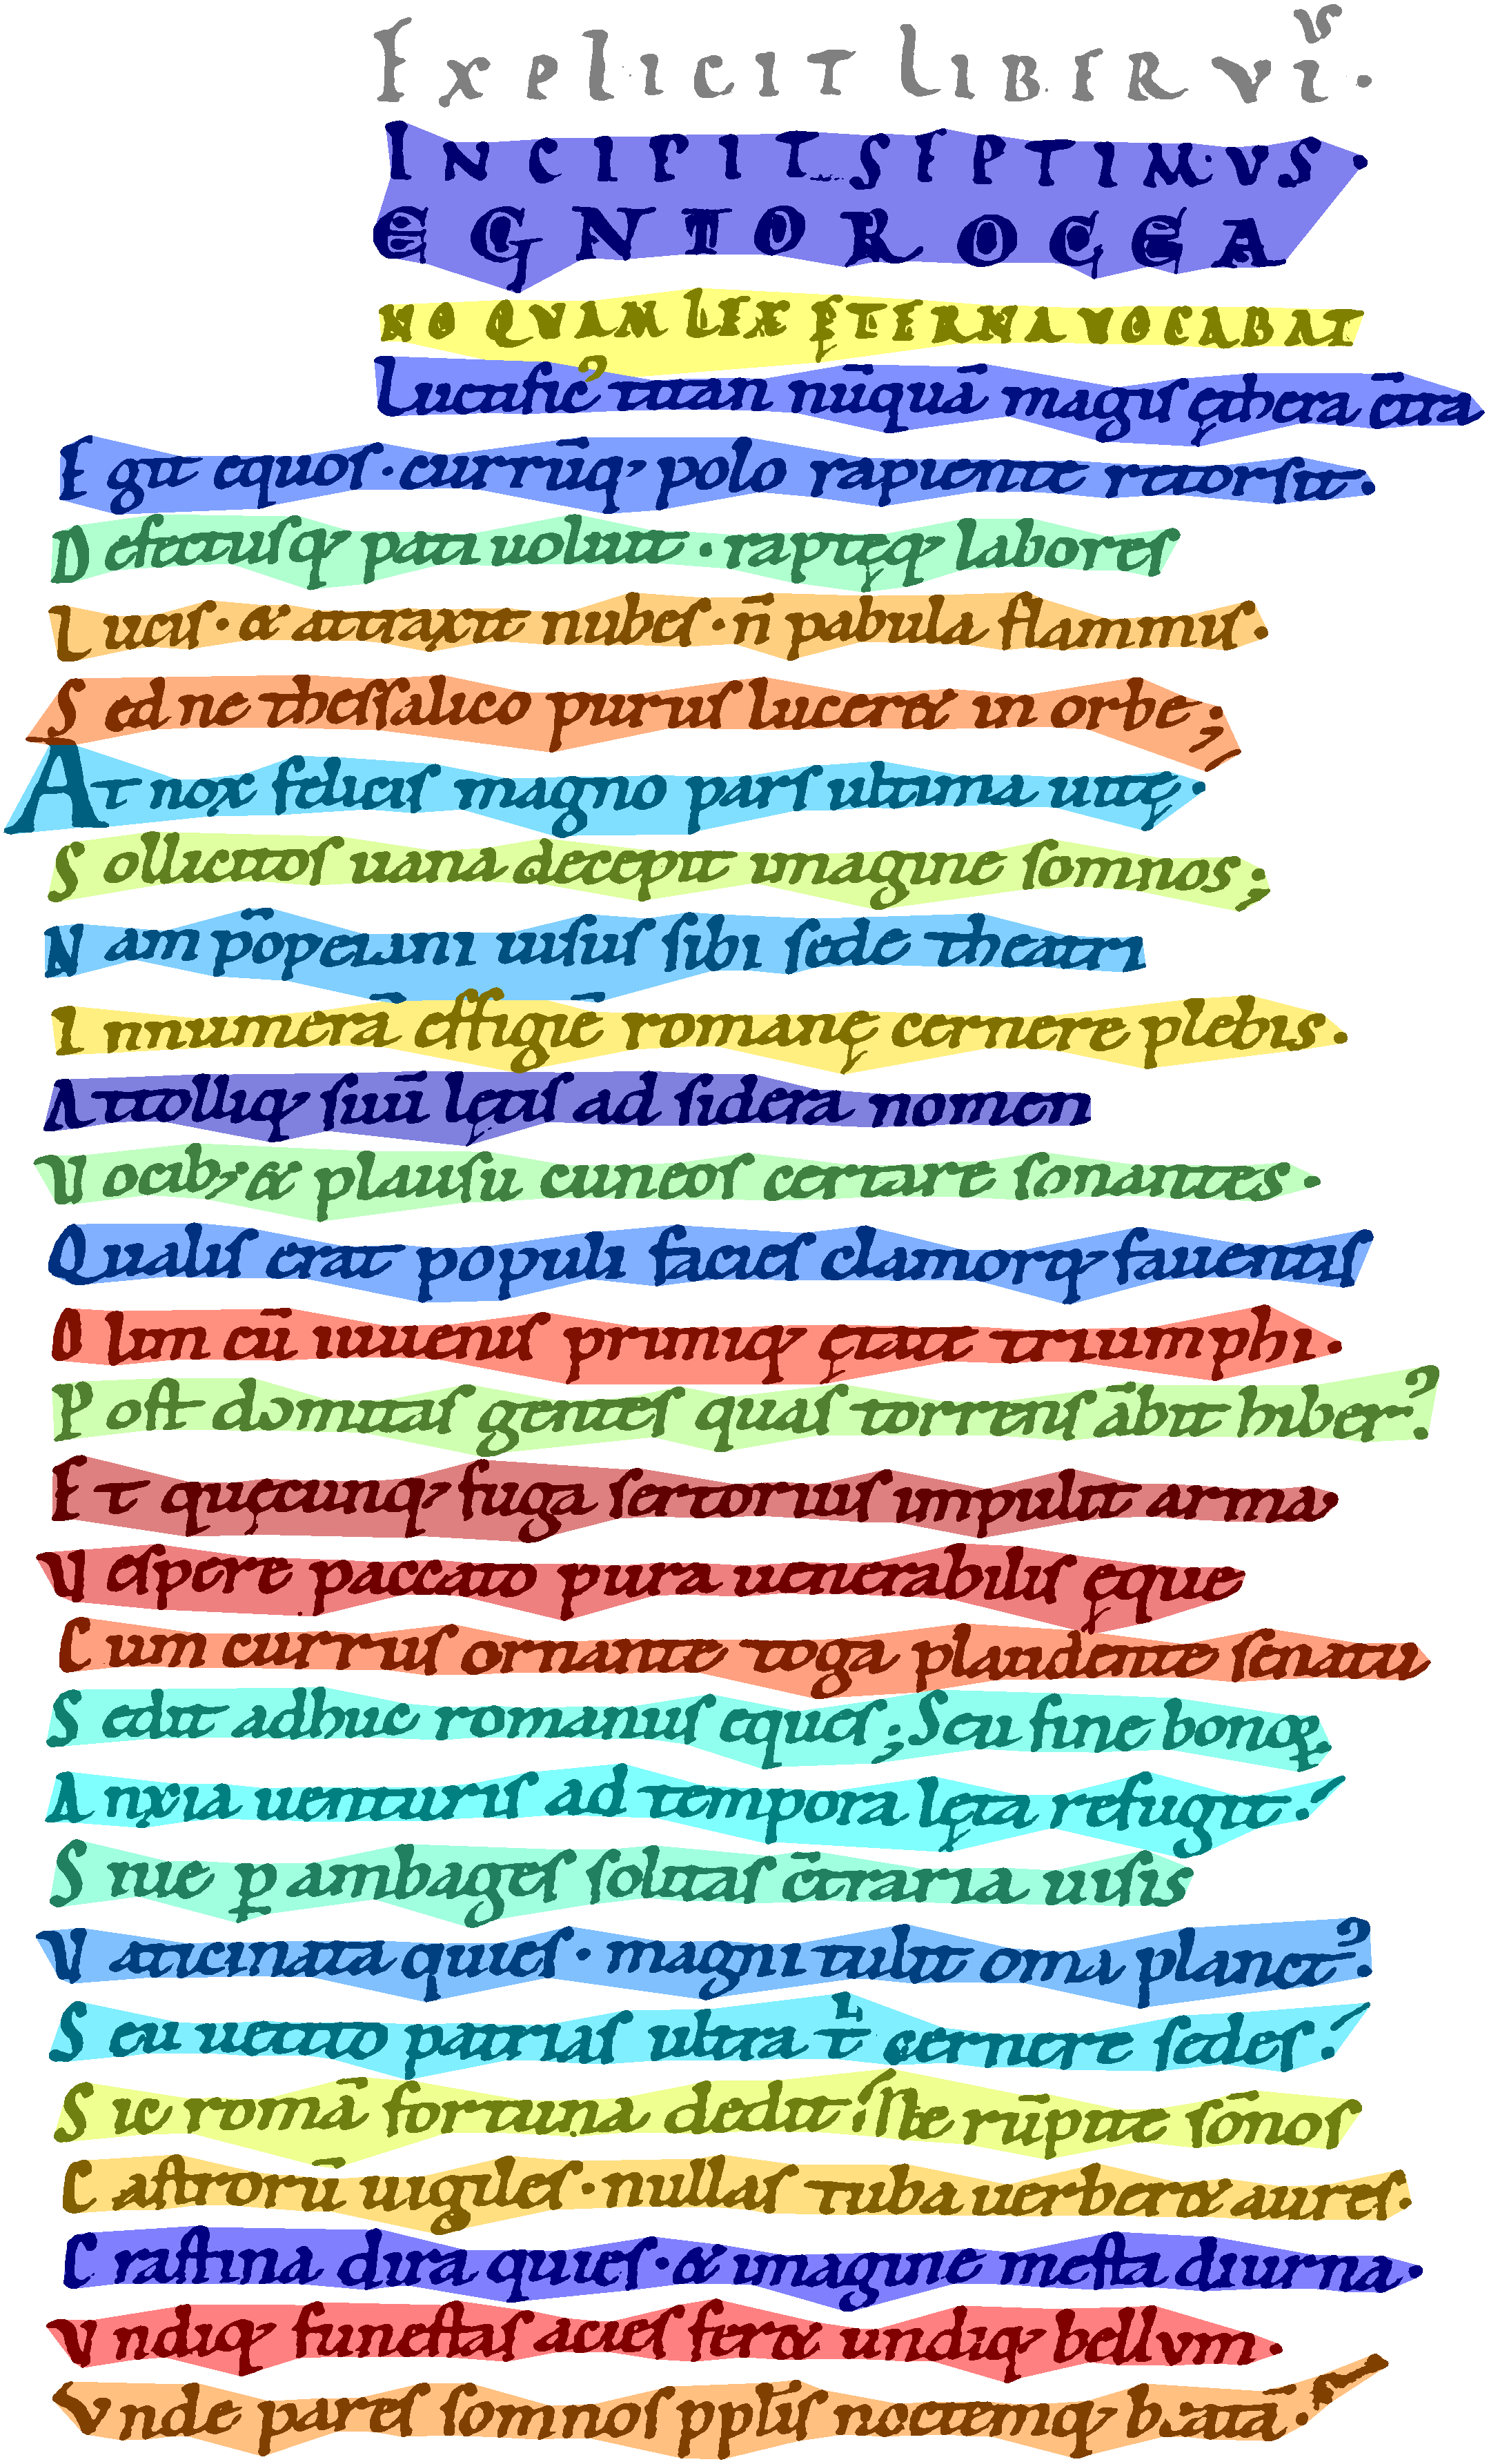 EXPLICIT LIBER VI᷒·
INCIPIT SEPTIMUS·
EGNIOR OCEA
NO QVAM LEX ĘTERNA VOCABAT
Luctific᷒ titan nūquā magis ęthera c̄tra
Egit equos· currūq; polo rapiente retorsit·
Defectusq; pati uoluit· rapteq; labores
Lucis· & attraxit nubes· n̄ pabula flammis·
Sed ne thessalico purus lucer& in orbe;
At nox felicis magno pars ultima uitę·
Sollicitos uana decepit imagine somnos;
Nam pōpeiani uisus sibi sede theatri
Innumerā effigiē romanę cernere plebis·
Attolliq; suū lętis ad sidera nomen
Vocib; & plausu cuneos certare sonantes·
Qualis erat populi facies clamorq; fauentis
Olim cū iuuenis primiq; ętate triumphi·
Post domitas gentes quas torrens ābit hiber?
Et quęcunq; fuga sertorius impulit arma
Vespere paccato pura uenerabilis ęque
Cum currus ornante toga plaudente senatu
Sedit adhuc romanus eques; Seu fine bonoꝝ
Anxia uenturis ad tempora lęta refugit?
Siue ꝑ ambages solitas c̄traria uisis
Vaticinata quies· magni tulit oma planct᷒?
Seu uetito patrias ultra tᷝ cernere sedes?
Sic romā fortuna dedit? Ne rūpite sōnos
Castrorū uigiles· nullas tuba uerber& aures·
Crastina dira quies· & imagine mesta diurna·
Vndiq; funestas acies fer& undiq; bellum·
Vnde pares somnos pplis noctemq; beatā·